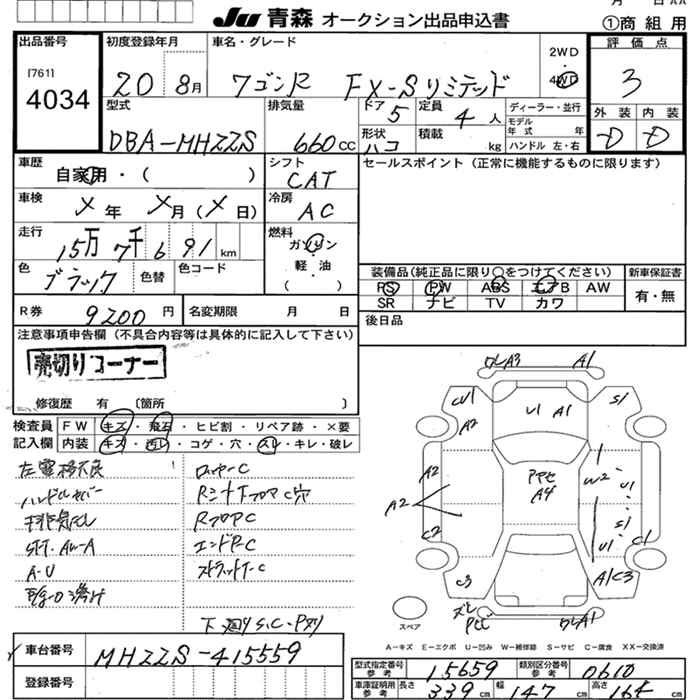 月 日AA
JU 青森 オークション出品申込書
①商組用
出品番号
[761]
4034
初度登録年月
20 8月
車名・グレード
ワゴンR FX-Sリミテッド
2WD
4WD
評価点
3
型式
DBA-MH22S
排気量
660cc
ドア
5
定員
4人
形状
ハコ
積載
kg
ディーラー・並行
モデル年式 年
ハンドル 左・右
外装
D
内装
D
車歴
自家用・( )
シフト
CAT
セールスポイント(正常に機能するものに限ります)
車検
メ年 メ月(メ日)
冷房
AC
走行
15万7千691km
燃料
ガソリン
軽油
( )
色
ブラック
色替
色コード
装備品(純正品に限り○をつけてください)
PS PW ABS エアB AW
SR ナビ TV カワ
新車保証書
有・無
R券
9200円
名変期限 月 日
後日品
注意事項申告欄(不具合内容等は具体的に記入して下さい)
売切りコーナー
修復歴 有 〔箇所 〕
検査員記入欄
FW キズ・飛石・ヒビ割・リペア跡・×要
内装 キズ・汚レ・コゲ・穴・スレ・キレ・破レ
ハンドルカバー
排気モレ
A-U
ロッカーC
RフロアC
エンドP-C
ストラットC
下廻りS.C-Pヌリ
ワレA3
A1
CU1
A2
U1 A1
S1
A2
A2
C2
A4
W2
U1
S1
U1
C1
C3
A1C3
ズレ
ワレA1
スペア
A-キズ E-エクボ U-凹み W-補修跡 S-サビ C-腐食 XX-交換済
車台番号
MH22S-415559
登録番号
型式指定番号 参考
15659
類別区分番号 参考
0610
車庫証明用 参考
長さ 339cm
幅 147cm
高さ 164cm